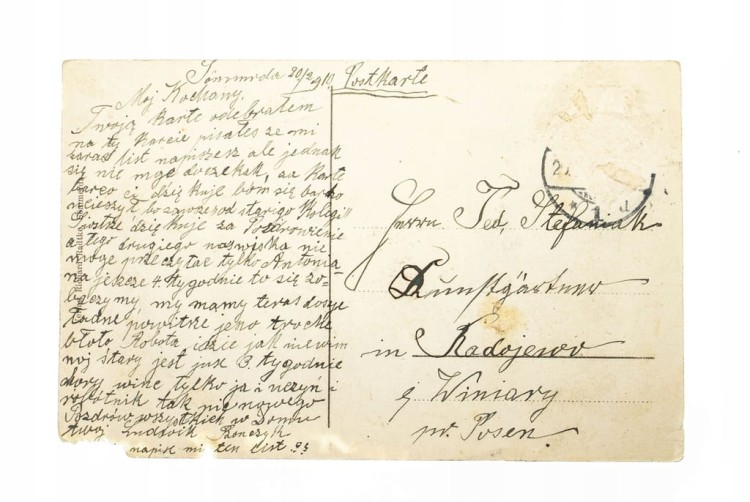 Sömmerda 20/2 910.
Moj Kochany.
Twoją karte odebrałem
na ty karcie pisałes ze mi
zaras list napiszesz ale jednak
się nie moge doczekak, za karte
barco ci dziękuje bom się barzo
ucieszył bo
od starigo Kolegi
Siostrze dziękuje za Pozdrowienie
a tego drugiego naswiska nie
moge przeczytac tylko Antonia
na jescze 4 tygodnie to się zo-
baczymy, my mamy teras dosyc
ładne powitrze jeno troche
błoto Robota idzie jak niewim
moj stary jest jus 3. tygodnie
chory wine tylko ja i uczyn i
robotnik tak nic nowego
Pozdrów wszystkich w Domu
twoj Ludwik
napisz mi ten list
Postkarte
Herrn Ted, Stefaniak
Kunstgärtner
in Radojewo
Winiary
pr. Posen